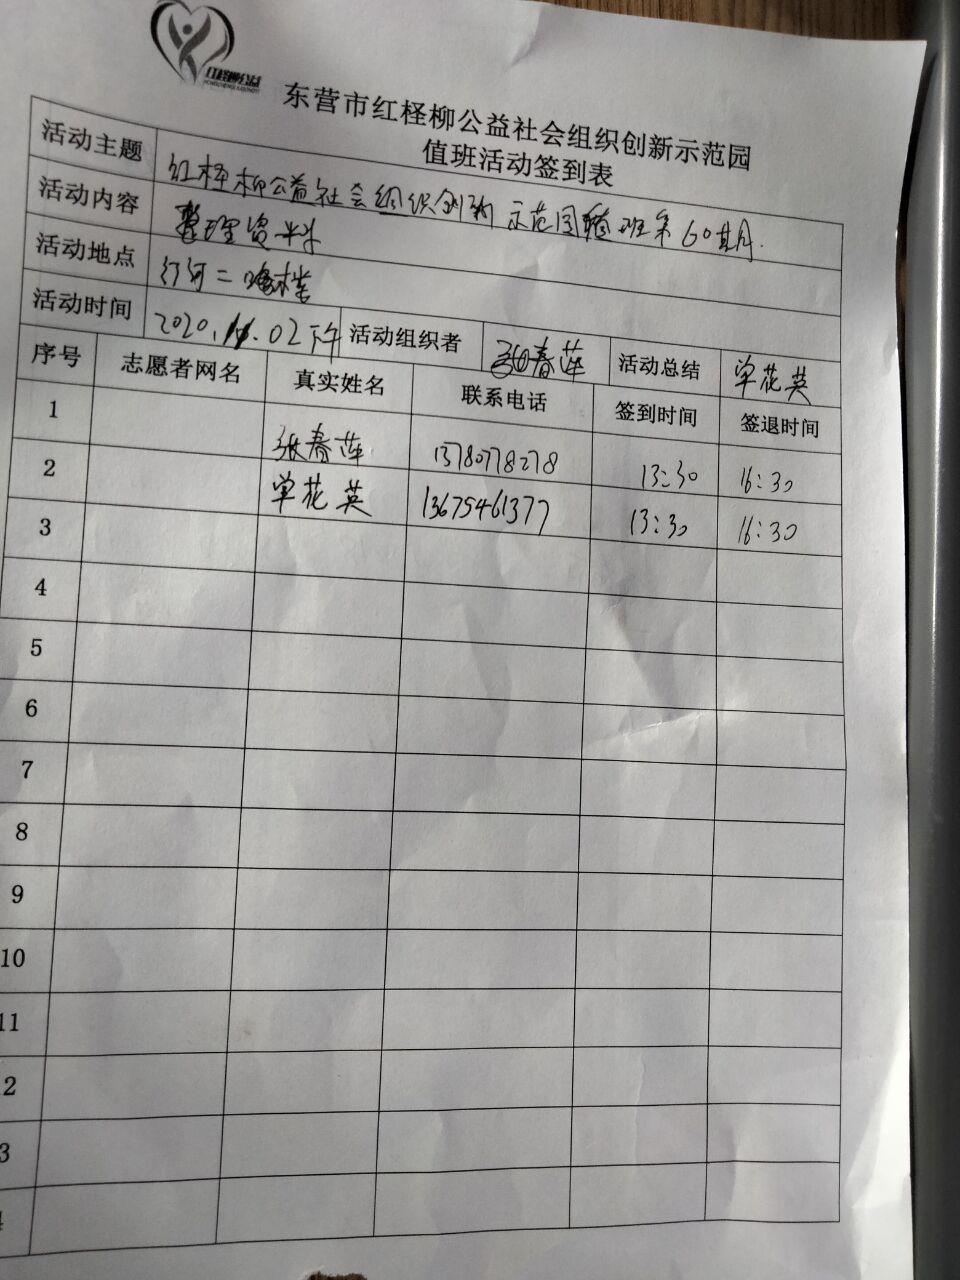 红柽柳公益
东营市红柽柳公益社会组织创新示范园
值班活动签到表
活动主题 红柽柳公益社会组织创新示范园值班第60期
活动内容 整理资料
活动地点
活动时间 2020.11.02下午 活动组织者 张春莲 活动总结 单花英
序号 志愿者网名 真实姓名 联系电话 签到时间 签退时间
1 张春莲 13780778278 13:30 16:30
2 单花英 13675461377 13:30 16:30
3
4
5
6
7
8
9
10
11
2
3
4